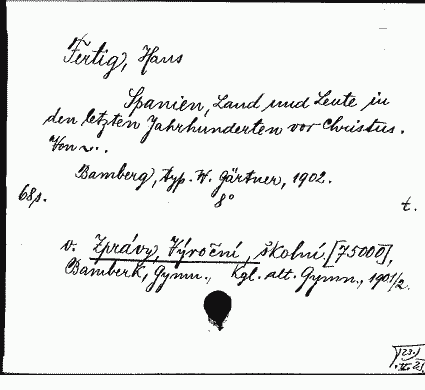 Fertig, Hans
Spanien, Land und Leute in
den letzten Jahrhunderten vor Christus.
Von ~.
Bamberg, typ. W. Gärtner, 1902.
68s. 8° t.
v. Zprávy, Výroční, školní [75000],
Bamberk, Gymn., Kgl. alt. Gymn., 1901/2.